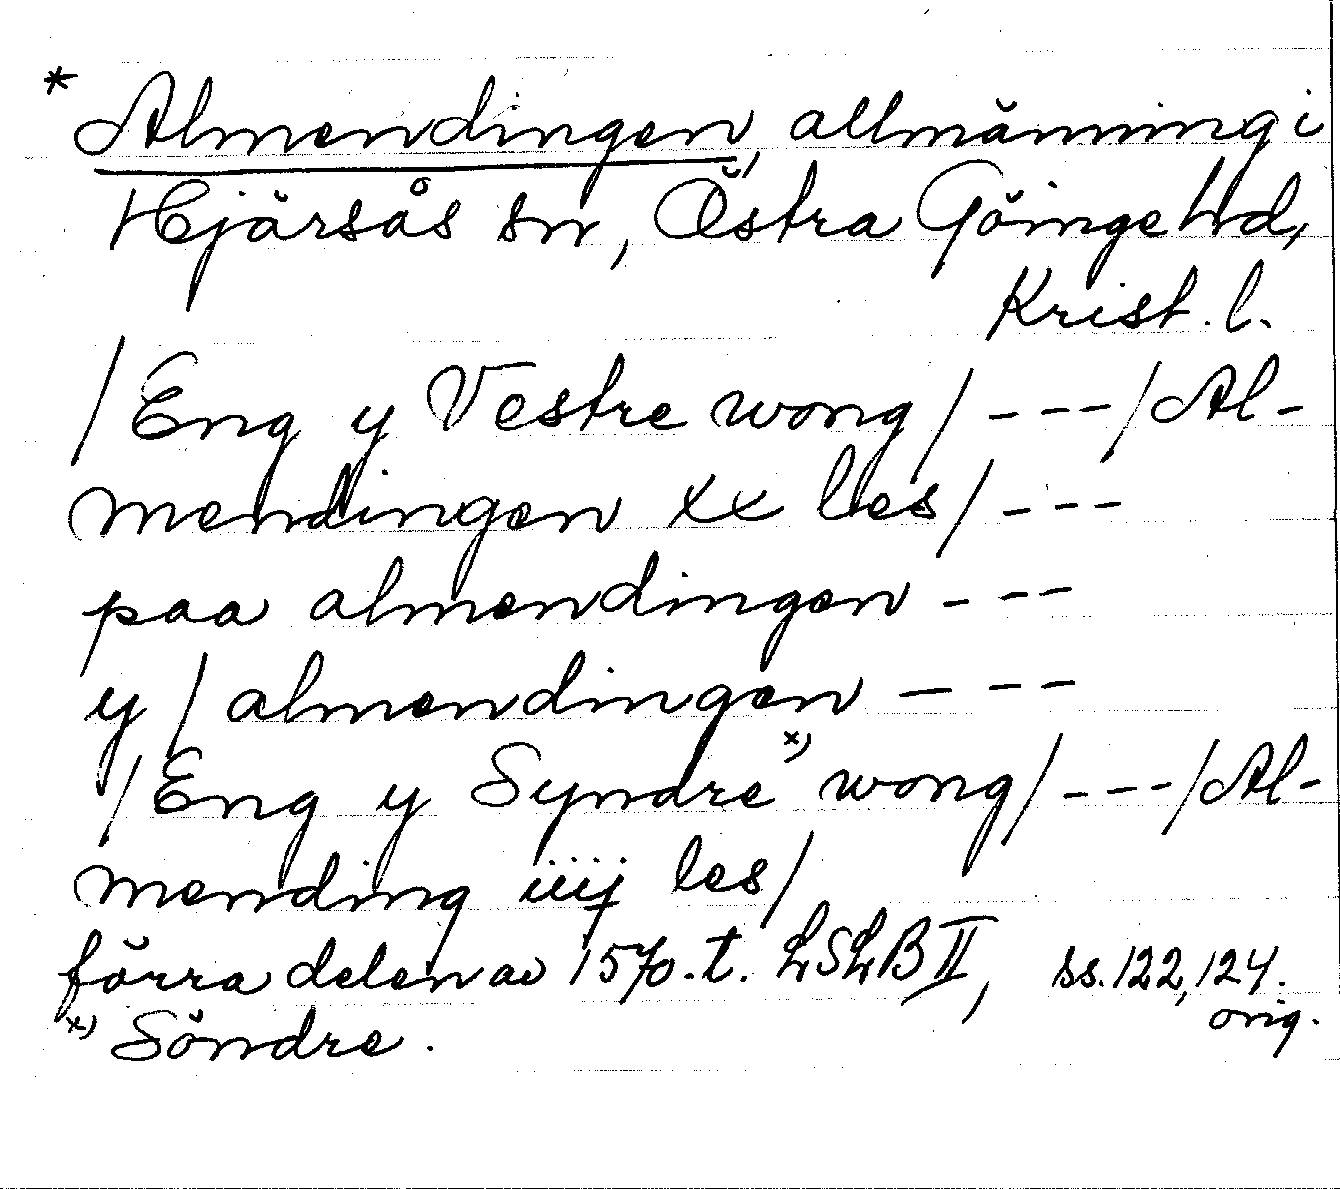 * Almendingen, allmänning i
Hjärsås sn, Östra Göinge hd,
Krist. l.
/Eng y Vestre wong/ - - - /Al-
mendingen xx les/ - - -
paa almendingen - - -
y / almendingen - - -
/Eng y Syndre x) wong/ - - - /Al-
mending iiij les/
förra delen av 1570-t. LSLB II, ss. 122, 124.
orig.
x) Söndre.